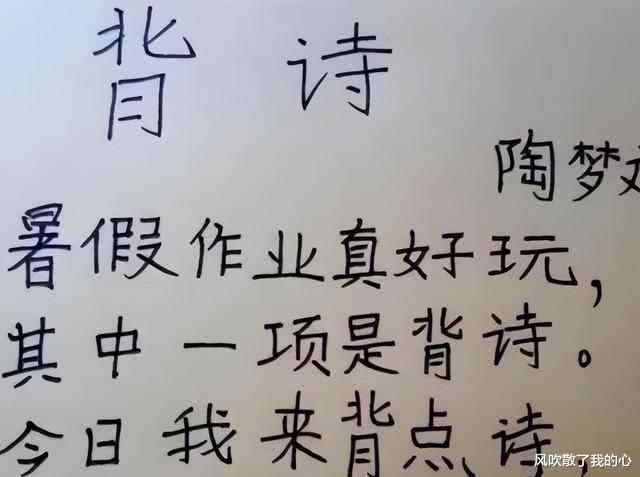 背 诗
陶梦
暑假作业真好玩,
其中一项是背诗。
今日我来背点诗,
风吹散了我的心